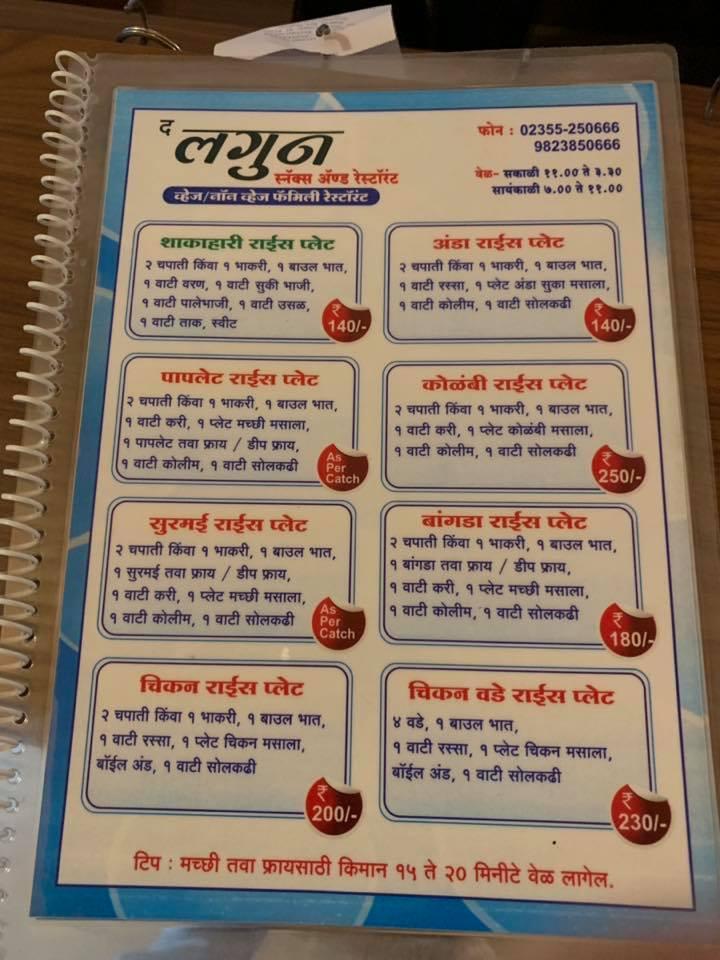 द लगुन
स्नॅक्स अ‍ॅण्ड रेस्टॉरंट
व्हेज/नॉन व्हेज फॅमिली रेस्टॉरंट
फोन : 02355-250666
9823850666
वेळ- सकाळी ११.०० ते ३.३०
सायंकाळी ७.०० ते ११.००
शाकाहारी राईस प्लेट
२ चपाती किंवा १ भाकरी, १ बाउल भात,
१ वाटी वरण, १ वाटी सुकी भाजी,
१ वाटी पालेभाजी, १ वाटी उसळ,
१ वाटी ताक, स्वीट
₹
140/-
अंडा राईस प्लेट
२ चपाती किंवा १ भाकरी, १ बाउल भात,
१ वाटी रस्सा, १ प्लेट अंडा सुका मसाला,
१ वाटी कोलीम, १ वाटी सोलकढी
₹
140/-
पापलेट राईस प्लेट
२ चपाती किंवा १ भाकरी, १ बाउल भात,
१ वाटी करी, १ प्लेट मच्छी मसाला,
१ पापलेट तवा फ्राय / डीप फ्राय,
१ वाटी कोलीम, १ वाटी सोलकढी
As
Per
Catch
कोळंबी राईस प्लेट
२ चपाती किंवा १ भाकरी, १ बाउल भात,
१ वाटी करी, १ प्लेट कोळंबी मसाला,
१ वाटी कोलीम, १ वाटी सोलकढी
₹
250/-
सुरमई राईस प्लेट
२ चपाती किंवा १ भाकरी, १ बाउल भात,
१ सुरमई तवा फ्राय / डीप फ्राय,
१ वाटी करी, १ प्लेट मच्छी मसाला,
१ वाटी कोलीम, १ वाटी सोलकढी
As
Per
Catch
बांगडा राईस प्लेट
२ चपाती किंवा १ भाकरी, १ बाउल भात,
१ बांगडा तवा फ्राय / डीप फ्राय,
१ वाटी करी, १ प्लेट मच्छी मसाला,
१ वाटी कोलीम, १ वाटी सोलकढी
₹
180/-
चिकन राईस प्लेट
२ चपाती किंवा १ भाकरी, १ बाउल भात,
१ वाटी रस्सा, १ प्लेट चिकन मसाला,
बॉईल अंड, १ वाटी सोलकढी
₹
200/-
चिकन वडे राईस प्लेट
४ वडे, १ बाउल भात,
१ वाटी रस्सा, १ प्लेट चिकन मसाला,
बॉईल अंड, १ वाटी सोलकढी
₹
230/-
टिप : मच्छी तवा फ्रायसाठी किमान १५ ते २० मिनीटे वेळ लागेल.